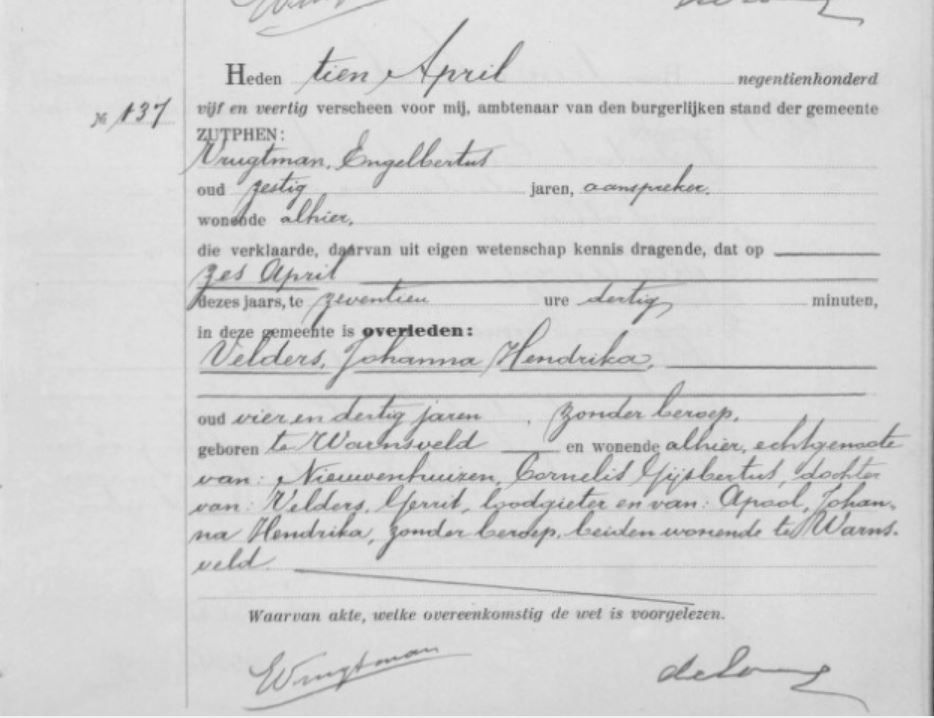 Heden tien April negentienhonderd
№ 137 vijf en veertig verscheen voor mij, ambtenaar van den burgerlijken stand der gemeente
ZUTPHEN:
Vrugtman, Engelbertus
oud zestig jaren, aanspreker,
wonende alhier,
die verklaarde, daarvan uit eigen wetenschap kennis dragende, dat op
zes April
dezes jaars, te zeventien ure dertig minuten,
in deze gemeente is overleden:
Velders, Johanna Hendrika,
oud vier en dertig jaren, zonder beroep,
geboren te Warnsveld en wonende alhier, echtgenoote
van: Nieuwenhuizen, Cornelis Gijsbertus, dochter
van: Velders, Gerrit, loodgieter en van: Apool, Johan-
na Hendrika, zonder beroep, beiden wonende te Warns-
veld.
Waarvan akte, welke overeenkomstig de wet is voorgelezen.
EVrugtman